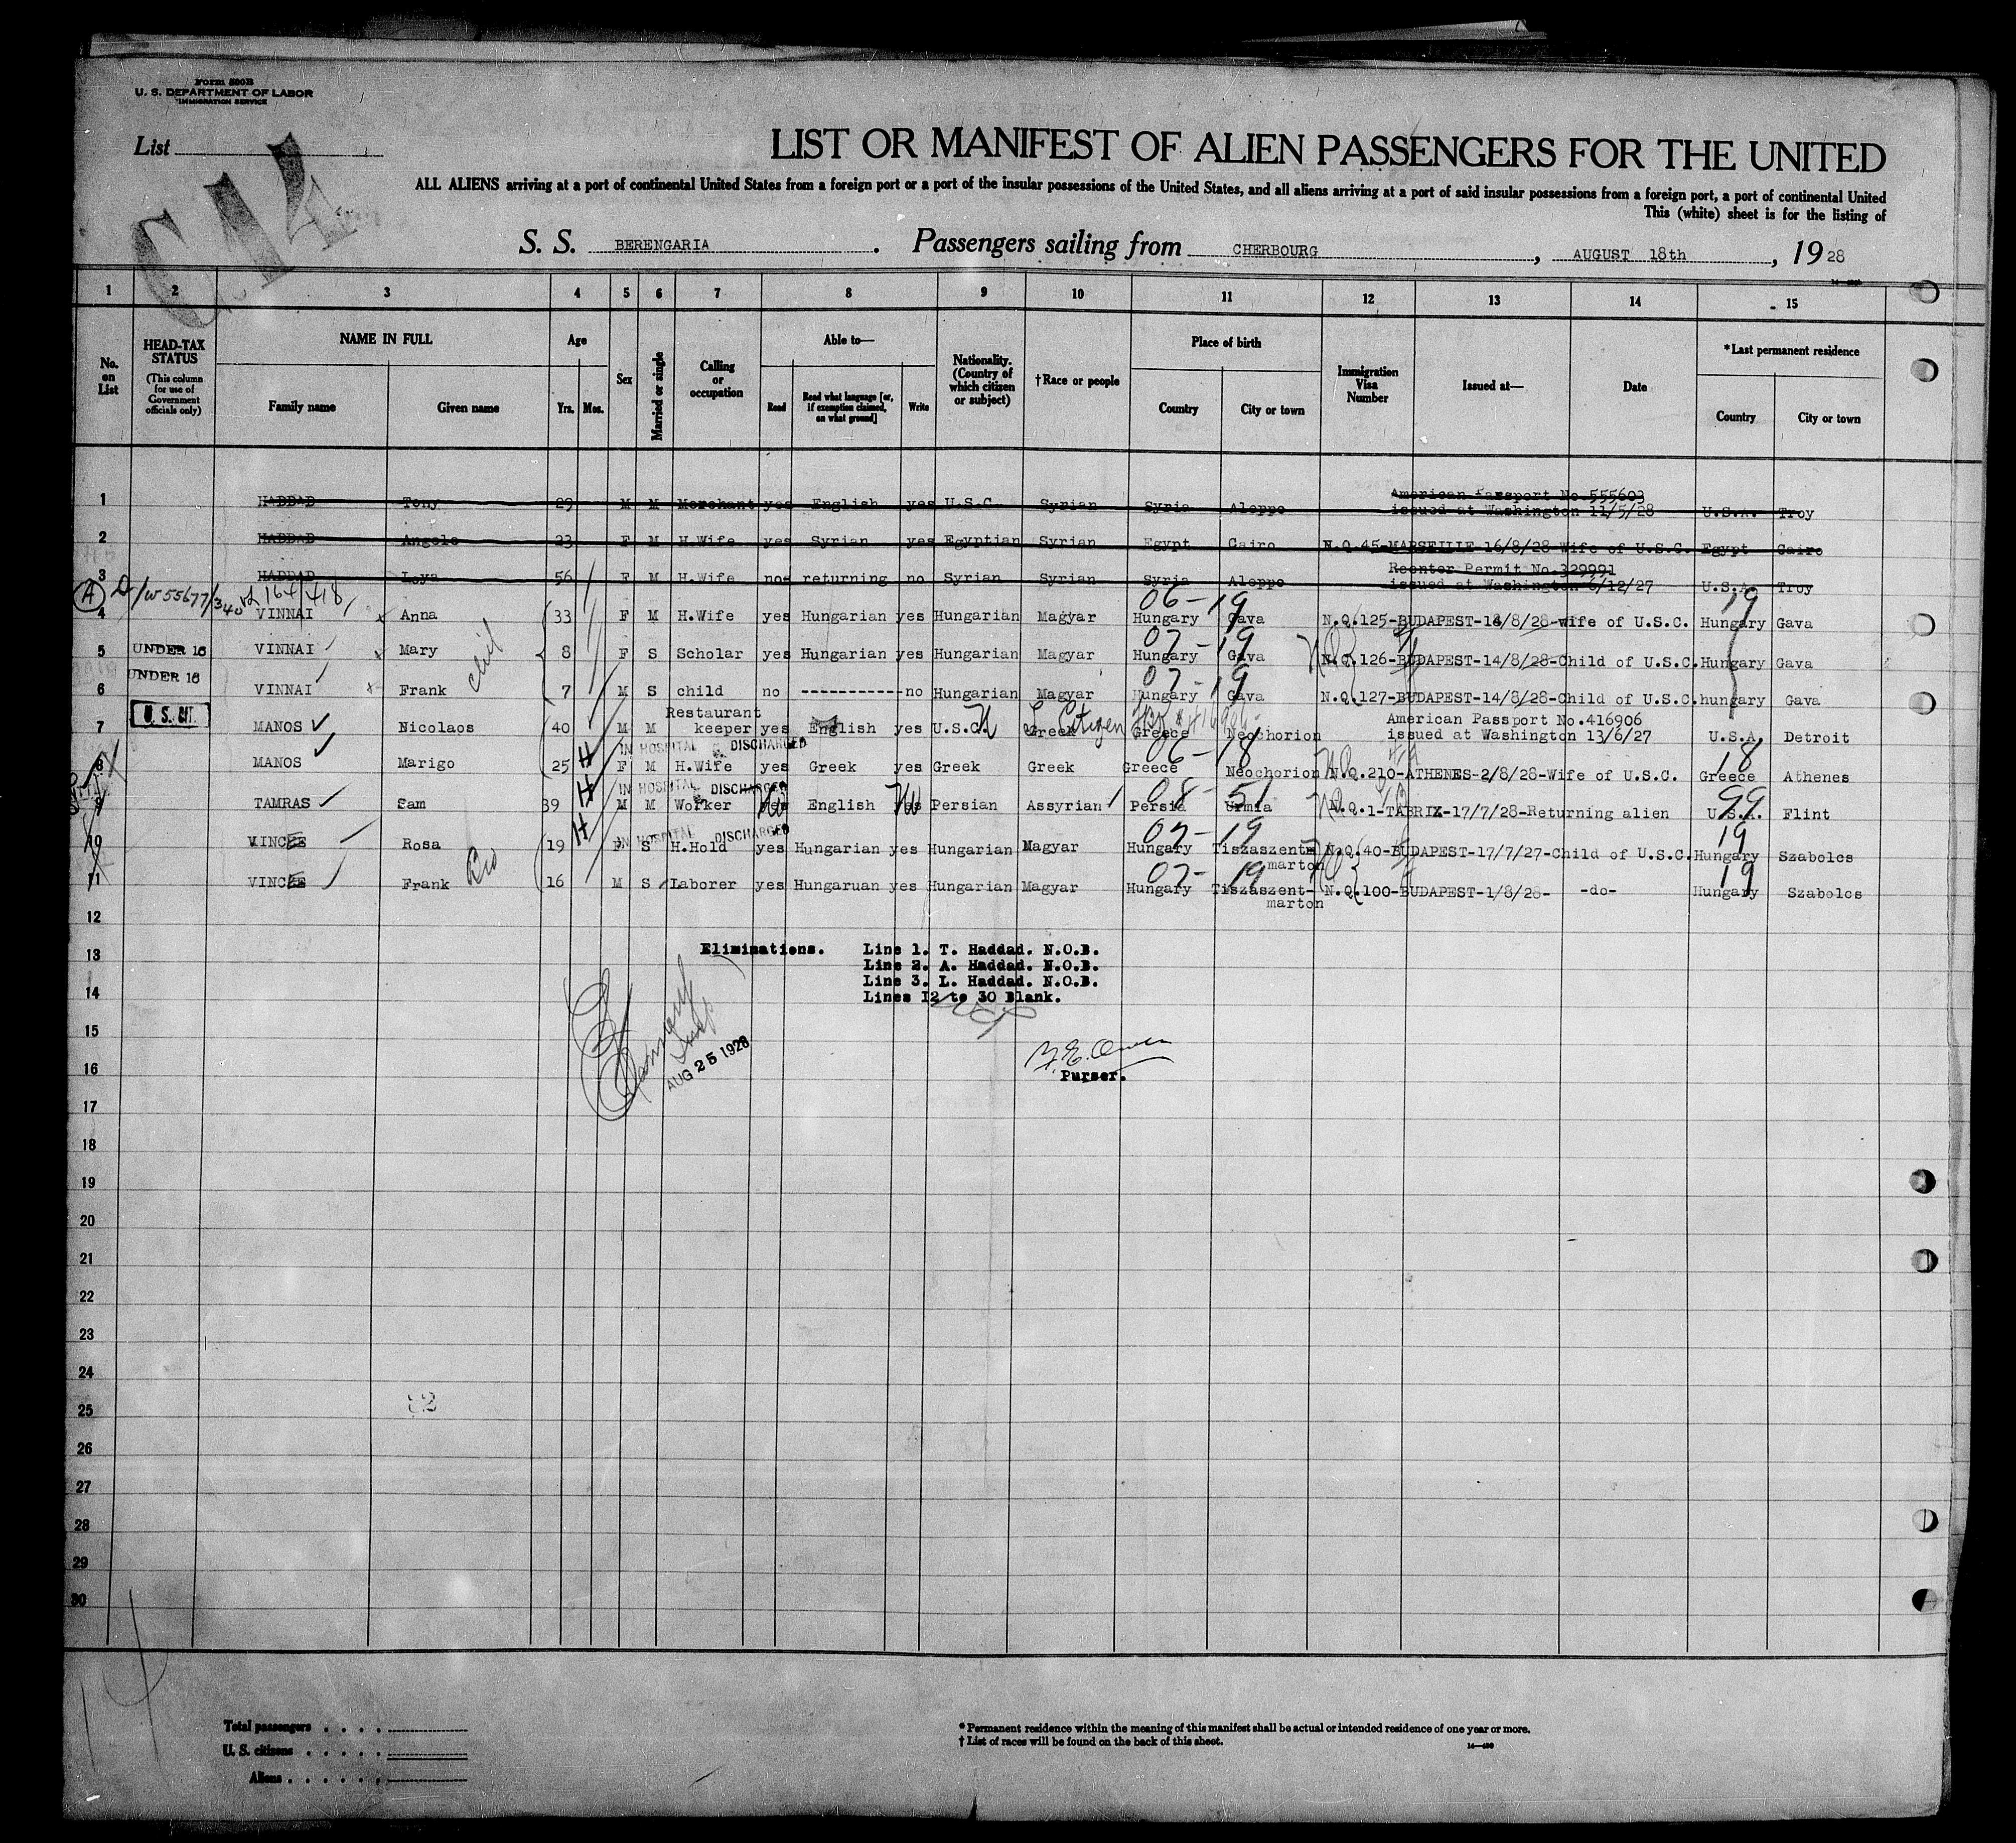 Form 500B
U. S. DEPARTMENT OF LABOR
IMMIGRATION SERVICE
List
C14
LIST OR MANIFEST OF ALIEN PASSENGERS FOR THE UNITED
ALL ALIENS arriving at a port of continental United States from a foreign port or a port of the insular possessions of the United States, and all aliens arriving at a port of said insular possessions from a foreign port, a port of continental United
This (white) sheet is for the listing of
S. S. BERENGARIA. Passengers sailing from CHERBOURG, AUGUST 18th, 1928
1 2 3 4 5 6 7 8 9 10 11 12 13 14 15
No. on List
HEAD-TAX STATUS (This column for use of Government officials only)
NAME IN FULL
Family name Given name
Age
Yrs. Mos.
Sex
Married or single
Calling or occupation
Able to—
Read Read what language [or, if exemption claimed, on what ground] Write
Nationality. (Country of which citizen or subject)
†Race or people
Place of birth
Country City or town
Immigration Visa Number
Issued at—
Date
*Last permanent residence
Country City or town
American Passport No.555603
1 HADDAD Tony 29 M M Merchant yes English yes U.S.C. Syrian Syria Aleppo issued at Washington 11/5/28 U.S.A. Troy
2 HADDAD Angele 23 F M H.Wife yes Syrian yes Egyptian Syrian Egypt Cairo N.Q.45-MARSEILLE-16/8/28-Wife of U.S.C. Egypt Cairo
Reenter Permit No.329991
3 HADDAD Loya 56 F M H.Wife no returning no Syrian Syrian Syria Aleppo issued at Washington 6/12/27 U.S.A. Troy
A W 55677/340 164418 06-19 19
4 VINNAI Anna 33 F M H.Wife yes Hungarian yes Hungarian Magyar Hungary Gava N.Q.125-BUDAPEST-14/8/28-wife of U.S.C. Hungary Gava
07-19
5 UNDER 16 VINNAI Mary 8 F S Scholar yes Hungarian yes Hungarian Magyar Hungary Gava N.Q.126-BUDAPEST-14/8/28-Child of U.S.C. Hungary Gava
07-19
6 UNDER 16 VINNAI Frank 7 M S child no ----------- no Hungarian Magyar Hungary Gava N.Q.127-BUDAPEST-14/8/28-Child of U.S.C. hungary Gava
U. S. CIT. Restaurant Citizen American Passport No.416906
7 MANOS Nicolaos 40 M M keeper yes English yes U.S.C. Greek Greece Neochorion issued at Washington 13/6/27 U.S.A. Detroit
H IN HOSPITAL DISCHARGED 06-18 18
8 MANOS Marigo 25 F M H.Wife yes Greek yes Greek Greek Greece Neochorion N.Q.210-ATHENES-2/8/28-Wife of U.S.C. Greece Athenes
H IN HOSPITAL DISCHARGED 08-51 99
9 TAMRAS Sam 39 M M Worker yes English yes Persian Assyrian Persia Urmia N.Q.1-TABRIX-17/7/28-Returning alien U.S.A. Flint
H IN HOSPITAL DISCHARGED 07-19 19
10 VINCZE Rosa 19 F S H.Hold yes Hungarian yes Hungarian Magyar Hungary Tiszaszent-marton N.Q.40-BUDAPEST-17/7/27-Child of U.S.C. Hungary Szabolcs
07-19 19
11 VINCZE Frank 16 M S Laborer yes Hungaruan yes Hungarian Magyar Hungary Tiszaszent-marton N.Q.100-BUDAPEST-1/8/28- -do- Hungary Szabolcs
12
13 Eliminations. Line 1. T. Haddad. N.O.B.
Line 2. A. Haddad. N.O.B.
Line 3. L. Haddad. N.O.B.
14 Lines 12 to 30 Blank.
15
AUG 25 1928
16 Purser.
17
18
19
20
21
22
23
24
25
26
27
28
29
30
14
Total passengers
U. S. citizens
Aliens
* Permanent residence within the meaning of this manifest shall be actual or intended residence of one year or more.
† List of races will be found on the back of this sheet.